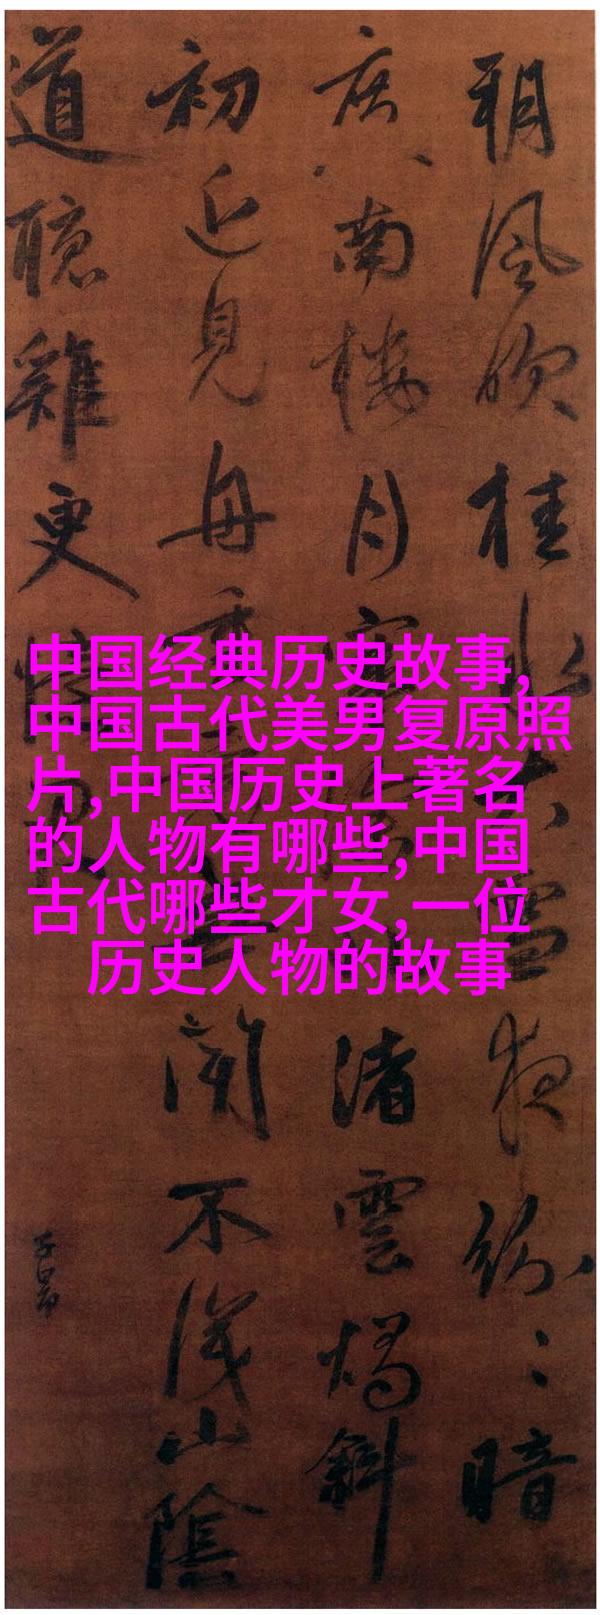 朔風吹桂水夜紛〻暗
度南樓月寒渚雲燭斜
初近見舟重聞不識山陰
道聽雞更憶
子昂
中国经典历史故事,
中国古代美男复原照
片,中国历史上著名
的人物有哪些,中国
古代哪些才女,一位
历史人物的故事